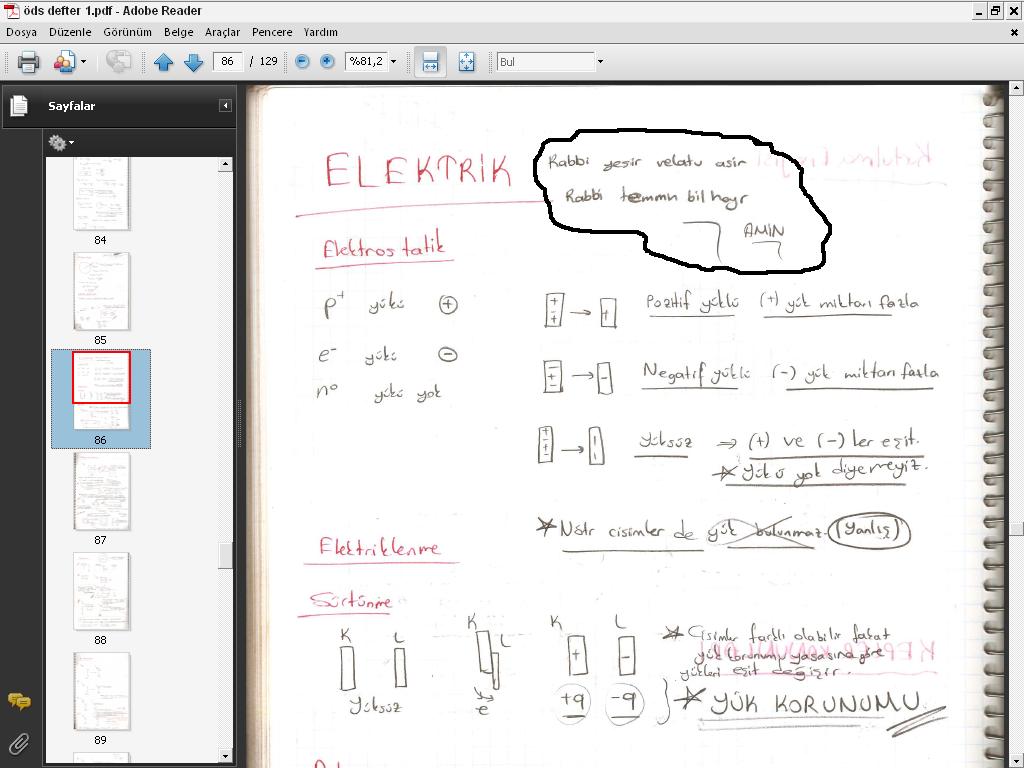 öds defter 1.pdf - Adobe Reader
Dosya Düzenle Görünüm Belge Araçlar Pencere Yardım
86 / 129 %81,2 Bul
Sayfalar
84
85
86
87
88
89
ELEKTRİK
Rabbi yesir velatu asir
Rabbi temmin bil hayr
AMİN
Elektrostatik
p+ yükü +
Pozitif yüklü (+) yük miktarı fazla
e- yükü −
Negatif yüklü (-) yük miktarı fazla
n0 yükü yok
Yüksüz ⇒ (+) ve (-) ler eşit.
★ Yükü yok diyemeyiz.
★ Nötr cisimler de yük bulunmaz. (Yanlış)
Elektriklenme
Sürtünme
K L K L K L
+ −
Yüksüz e +q -q
★ Cisimler farklı olabilir fakat
yük korunumu yasasına göre
yükleri eşit değişir.
★ YÜK KORUNUMU